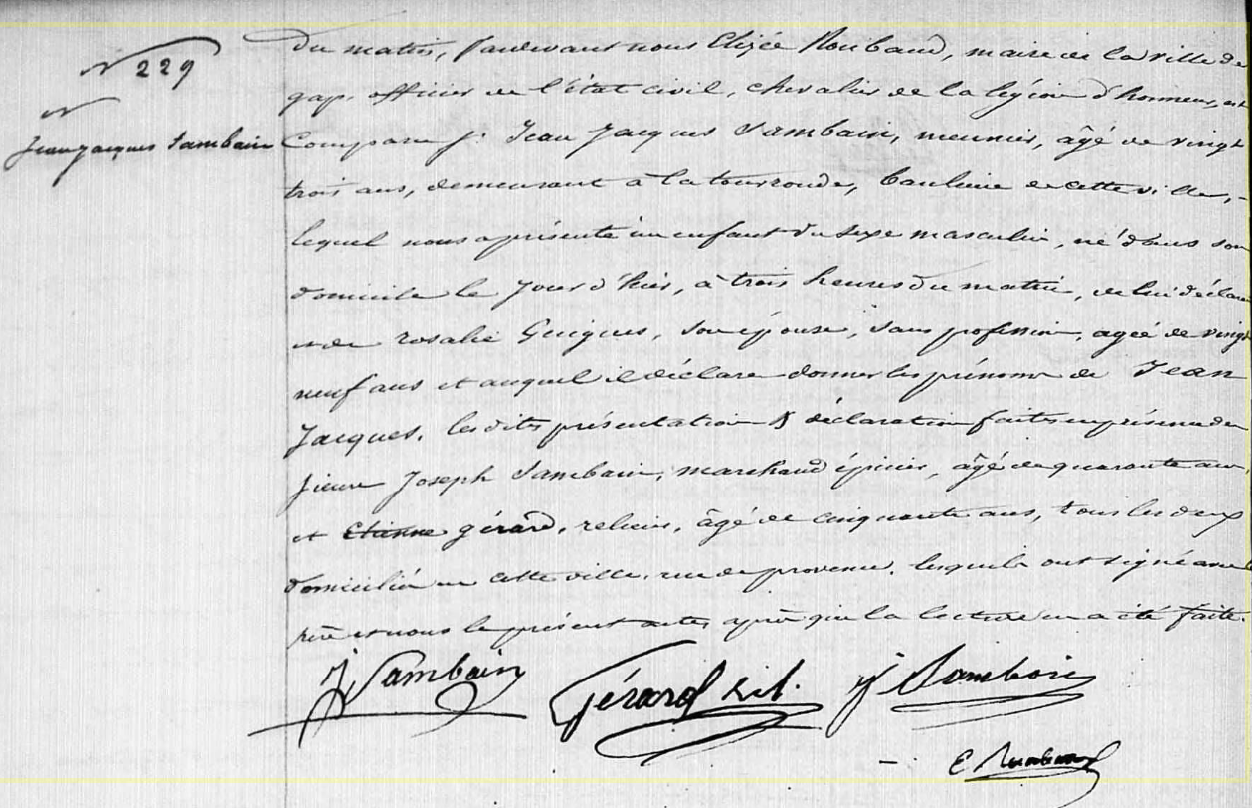 N 229
N
Jean Jacques Sambain
du matin, pardevant nous Elizée Roubaud, maire de la ville de
gap, officier de l'état civil, chevalier de la légion d'honneur, est
Comparu sr Jean Jacques Sambain, meunier, âgé de vingt
trois ans, demeurant à la tourronde, banlieue de cette ville,
lequel nous a présenté un enfant du sexe masculin, né dans son
domicile le jour d'hier, à trois heures du matin, de lui déclarant
et de rosalie Guigues, son épouse, sans profession, agée de vingt
neuf ans et auquel il déclare donner les prénoms de Jean
Jacques. les dites présentation & déclaration faites en présence de
pierre Joseph Sambain, marchand épicier, âgé de quarante ans
et Etienne gérard, relieur, âgé de cinquante ans, tous les deux
domiciliés en cette ville, rue de provence, lesquels ont signé avec le
père et nous le présent acte après que la lecture en a été faite.
J Sambain Gérard rel. J Sambain
E Roubaud